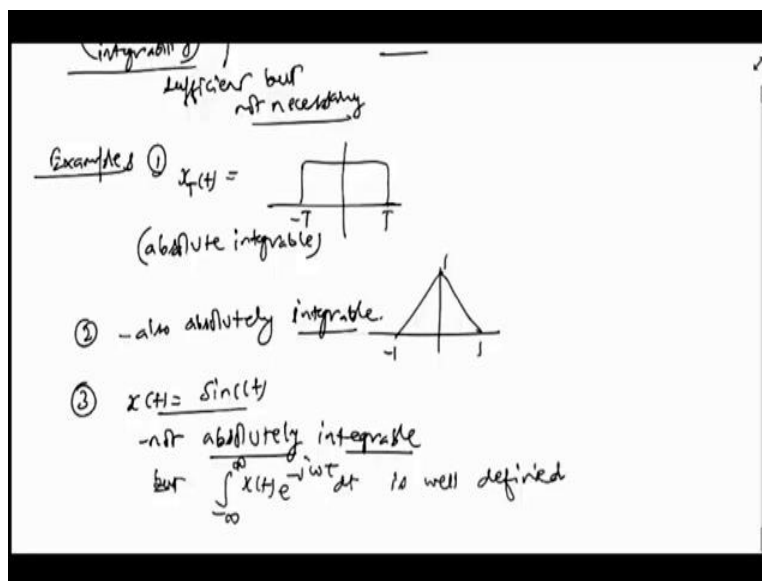 (integrability)
sufficient but
not necessary
Examples ① x_T(t) =
-T T
(absolute integrable)
1
② -also absolutely integrable.
-1 1
③ x(t) = sinc(t)
-not absolutely integrable
but ∫_{-∞}^{∞} x(t) e^{-jωt} dt is well defined